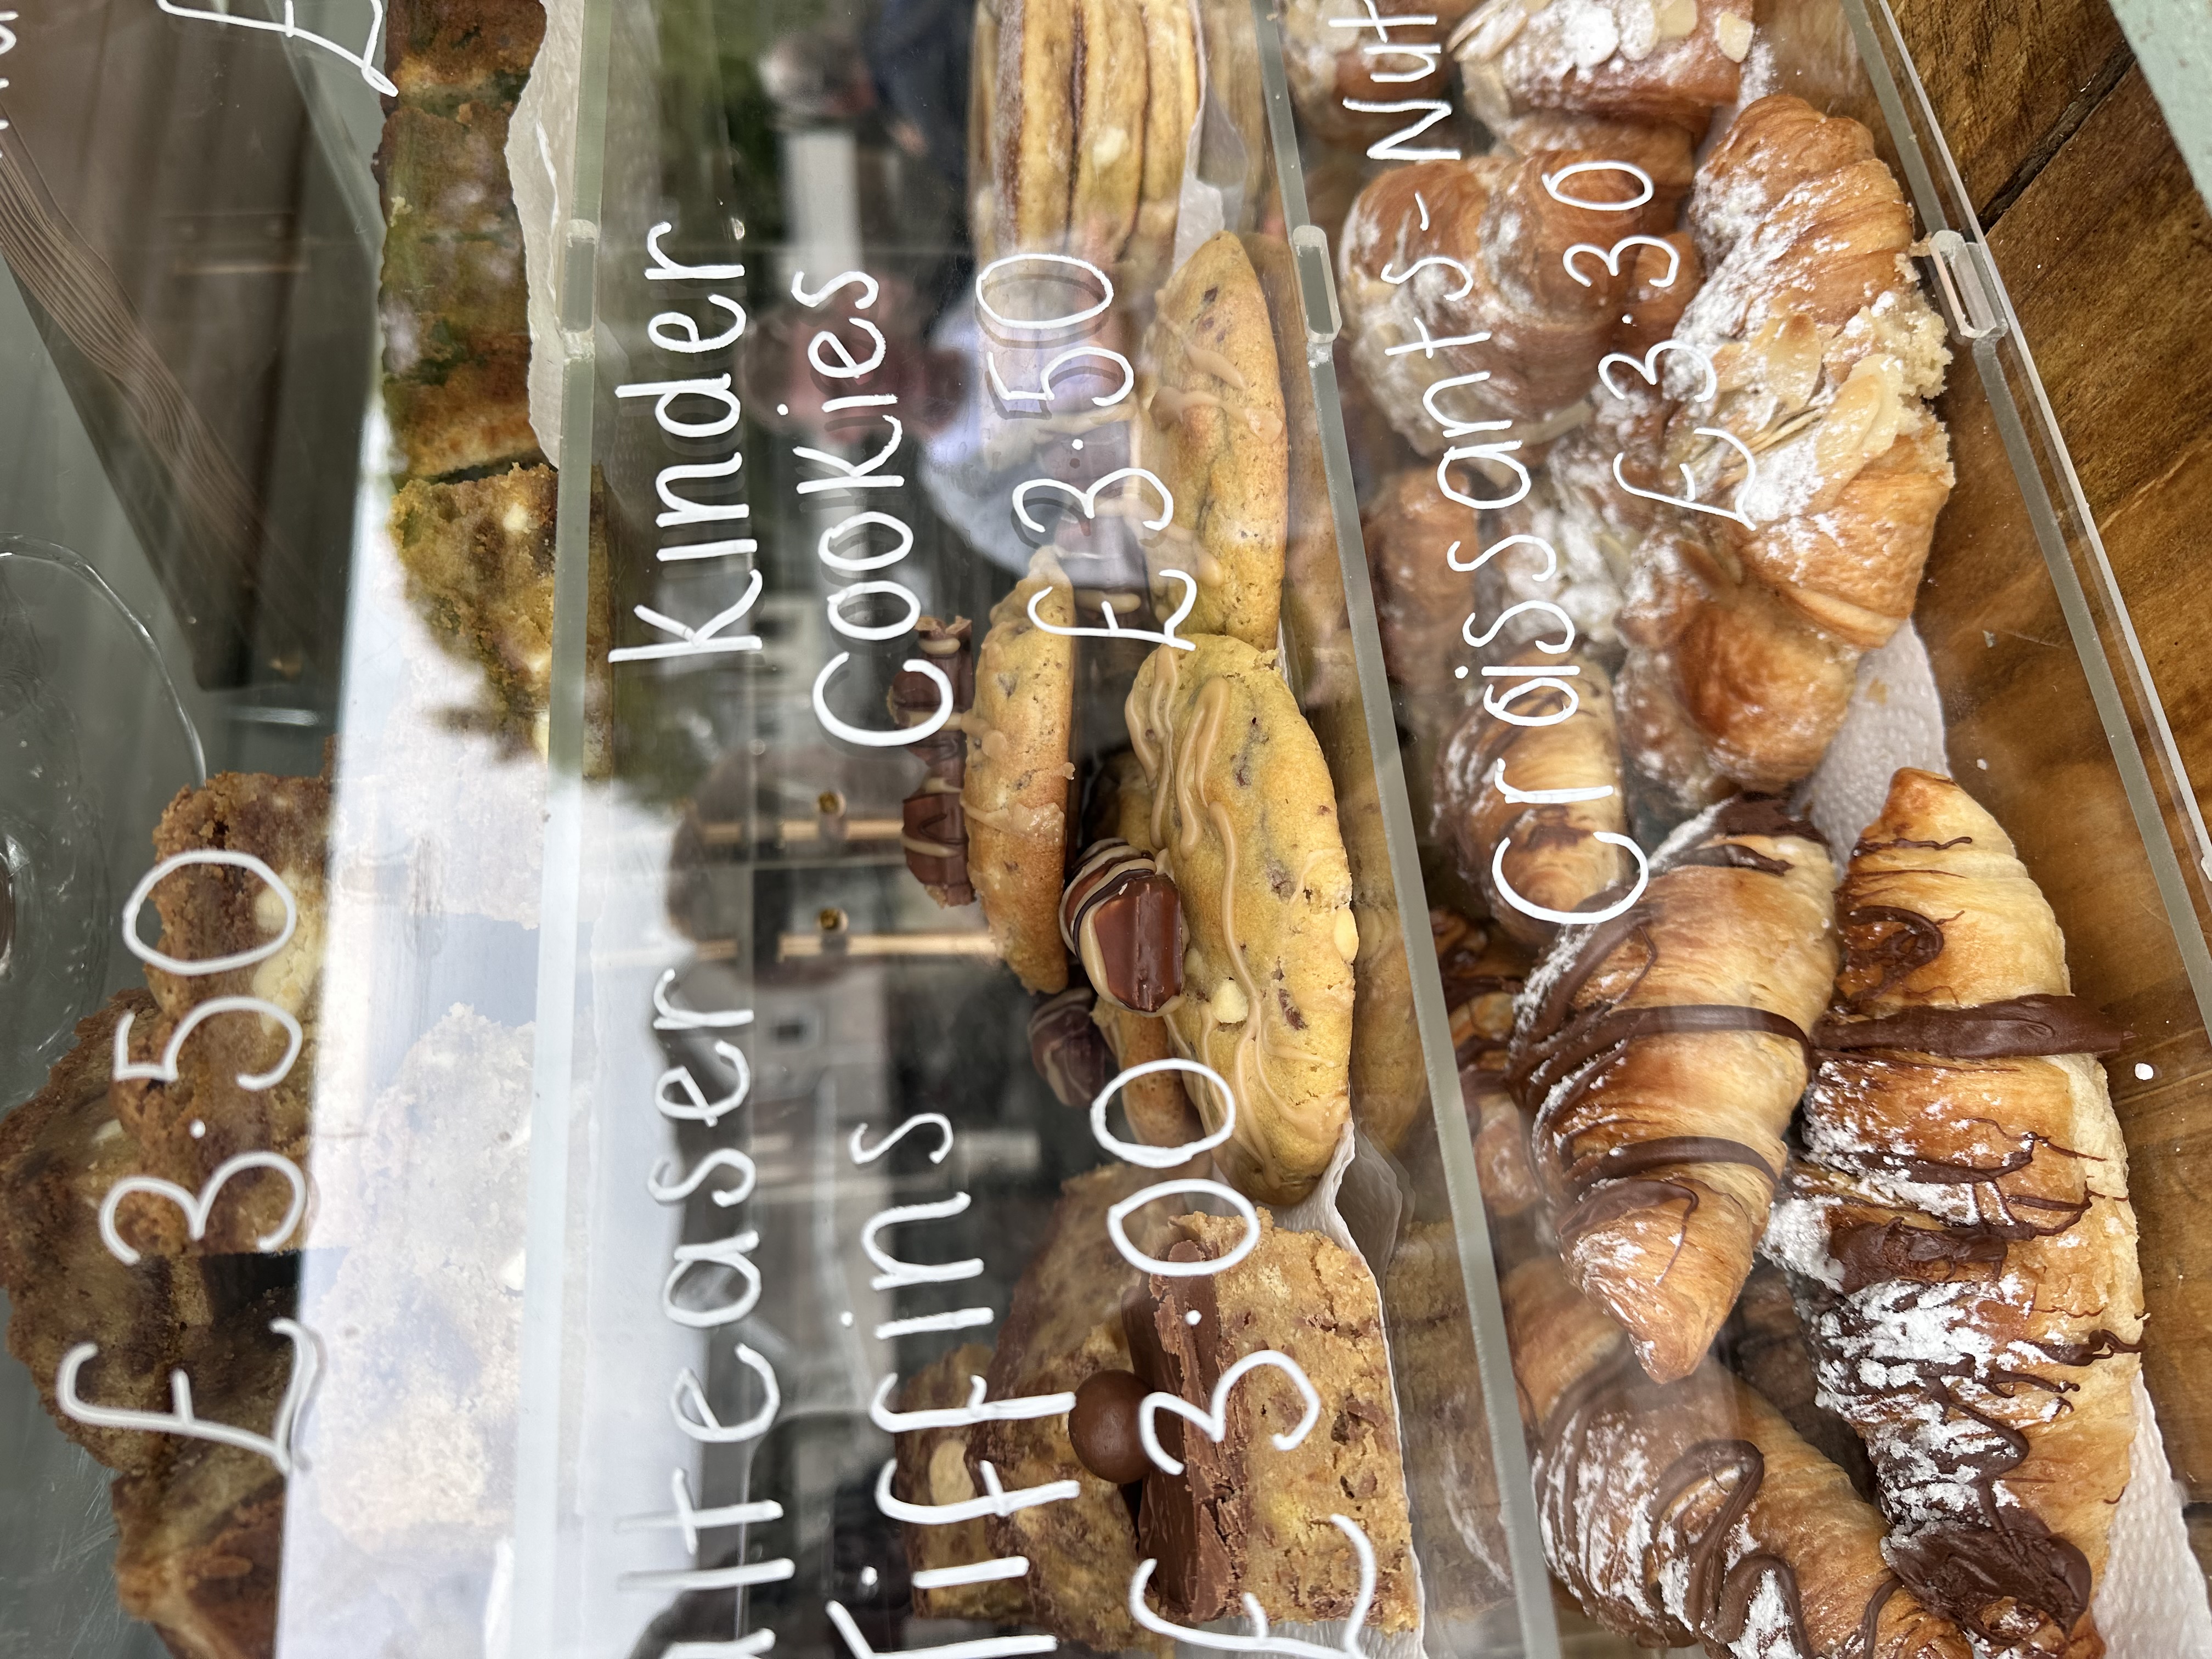 £3.50
£
alteaser
Tiffins
£3.00
Kinder
Cookies
£3.50
Croissants-Nut
£3.30